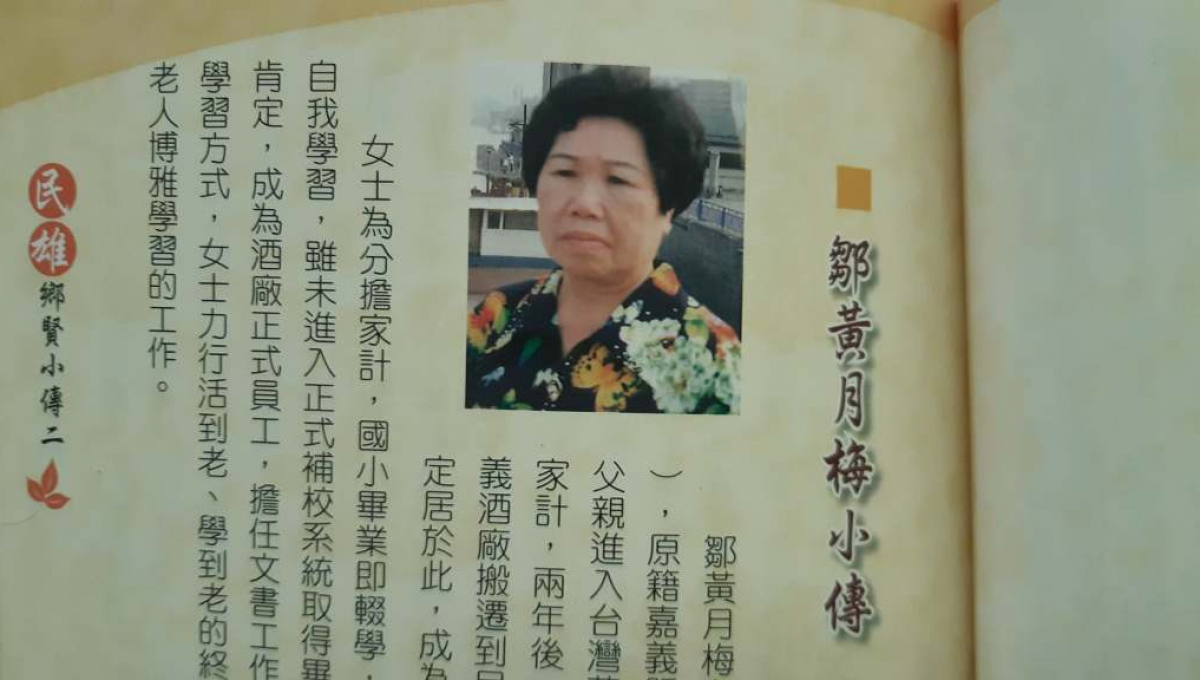 鄒黃月梅小傳
鄒黃月梅
），原籍嘉義
父親進入台灣
家計，兩年後
義酒廠搬遷到民
定居於此，成為
女士為分擔家計，國小畢業即輟學，
自我學習，雖未進入正式補校系統取得畢
肯定，成為酒廠正式員工，擔任文書工作
學習方式，女士力行活到老、學到老的終
老人博雅學習的工作。
民雄鄉賢小傳二